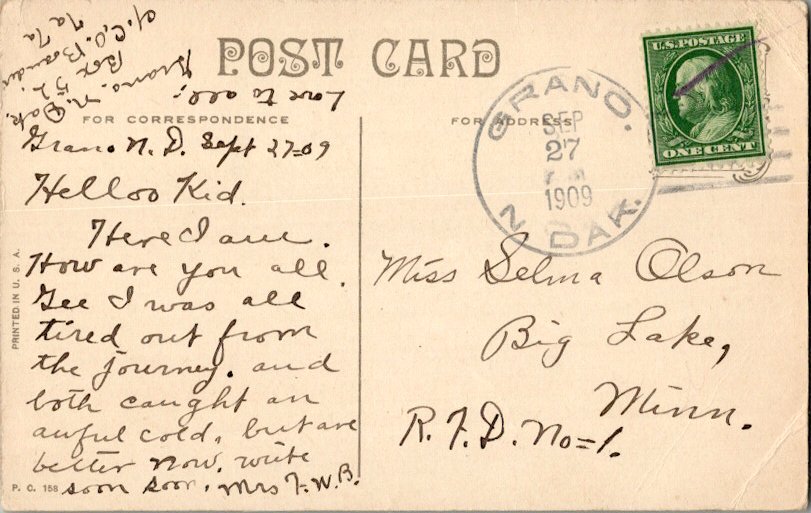 POST CARD
Love to all;
Grano. N. Dak.
Box 52
FOR CORRESPONDENCE
Grano N. D. Sept 27=09
Helloo Kid.
Here I am.
How are you all.
Gee I was all
tired out from
the journey. and
both caught an
awful cold. but are
better now. write
soon soon. Mrs F. W. B.
PRINTED IN U. S. A.
P. C. 158
FOR ADDRESS
GRANO.
SEP
27
1909
N. DAK.
U.S. POSTAGE
ONE CENT
Miss Selma Olson
Big Lake,
Minn.
R. F. D. No=1.